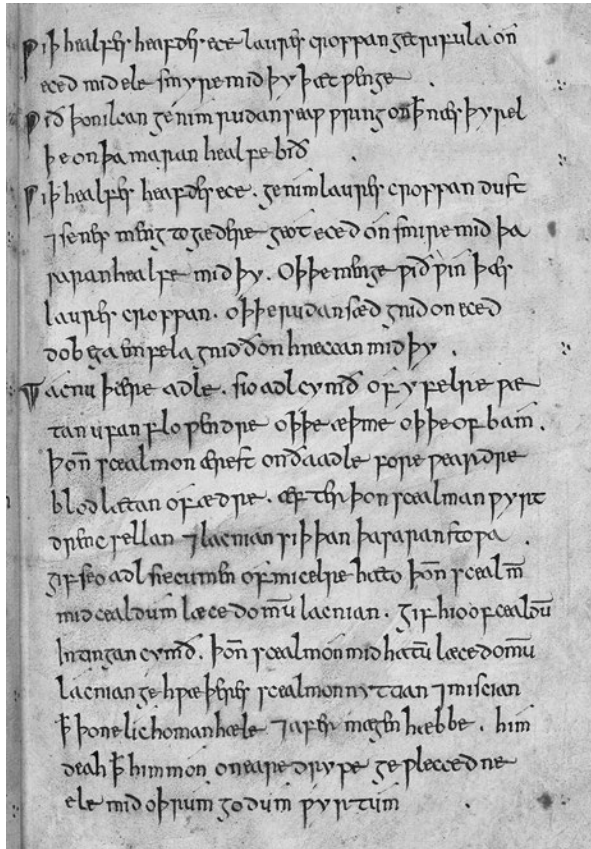 Ƿiþ healfes heafdes ece laures croppan getrifula on̅
eced mid ele smyre mid þy þæt ƿenge
Ƿið þon ilcan genim rudan seaƿ ƿring on ꝥ næs þyrel
þe on þa maran healfe bið
Ƿiþ healfes heafdes ece . genim laures croppan dust
⁊ senep meng togædre geot eced on̅ smire mid þa
saran healfe mid þy. Oþþe menge ƿið ƿin þæs
laures croppan. oþþe rudan sæd gnid on eced
do bega em fela gnid ðon hneccan mid þy .
Tacnu þære adle . sio adl cymð of yfelre ƿæ
tan ufan floƿendre oþþe æþme oþþe of bam .
þon̅ sceal mon ærest on ða adle foreƿeardre
blod lætan of ædre . æfter þon sceal man ƿyrt
drenc sellan ⁊ lacnian siþþan þa saran stoƿa .
gif seo adl sie cumen of micelre hæto þon̅ sceal m̅
mid cealdum læcedomu̅ lacnian . gif hio of cealdu̅
intingan cymð . þon̅ sceal mon mid hatu̅ læcedomu̅
lacnian gehƿæþeres sceal mon nyttian ⁊ miscian
ꝥ þone lichoman hæle ⁊ afer mægen hæbbe . him
deah ꝥ him mon on eare drype geƿleccedne
ele mid oþrum godum ƿyrtum .